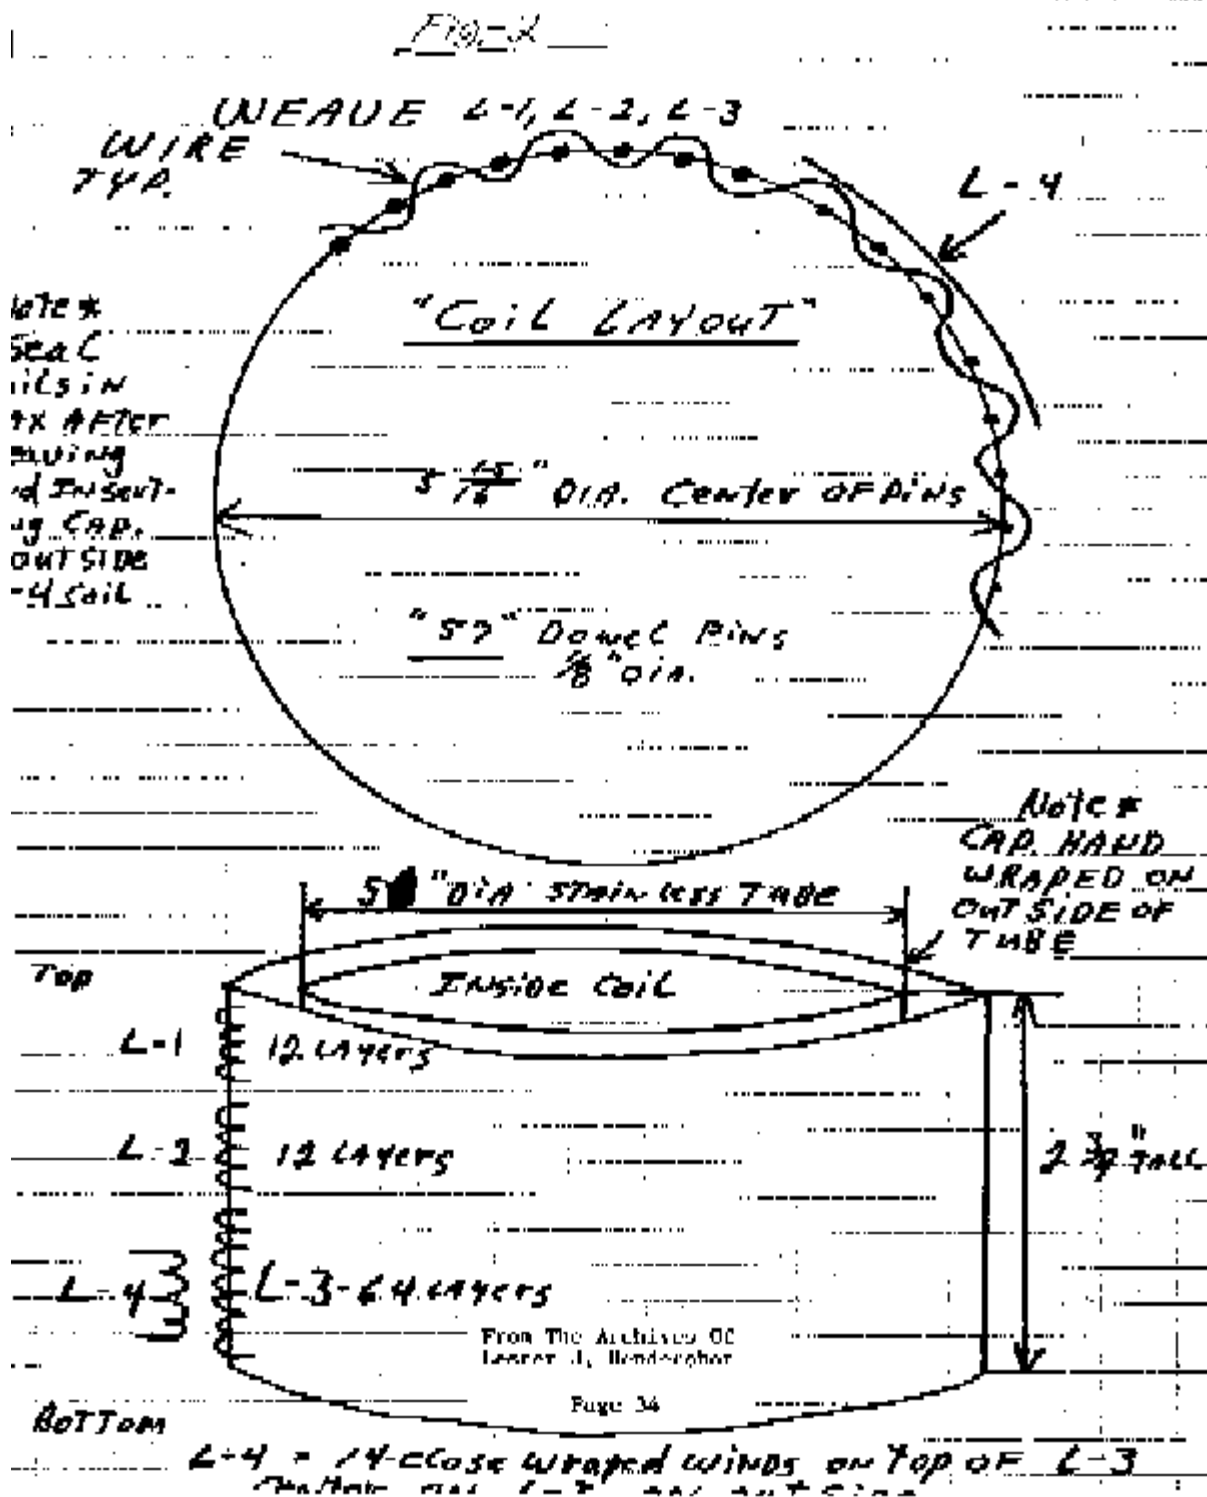 Fig-2
WEAVE L-1, L-2, L-3
WIRE
TYP.
L-4
"COIL LAYOUT"
Note *
Seal
in
AFTER
Insert-
CAP.
OUTSIDE
-4 Soil
5 15/16" DIA. Center OF PINS
"57" Dowel Pins
1/8" DIA.
Note *
CAP. HAND
WRAPED ON
OUT SIDE OF
TUBE
5 "DIA STAINLESS TUBE
Top
INSIDE COIL
L-1 12 LAYERS
L-2 12 LAYERS
2 3/4" TALL
L-4 L-3-64 LAYERS
From The Archives Of
Lester J.
Page 34
BOTTOM
L-4 = 14-CLOSE WRAPED WINDS ON TOP OF L-3